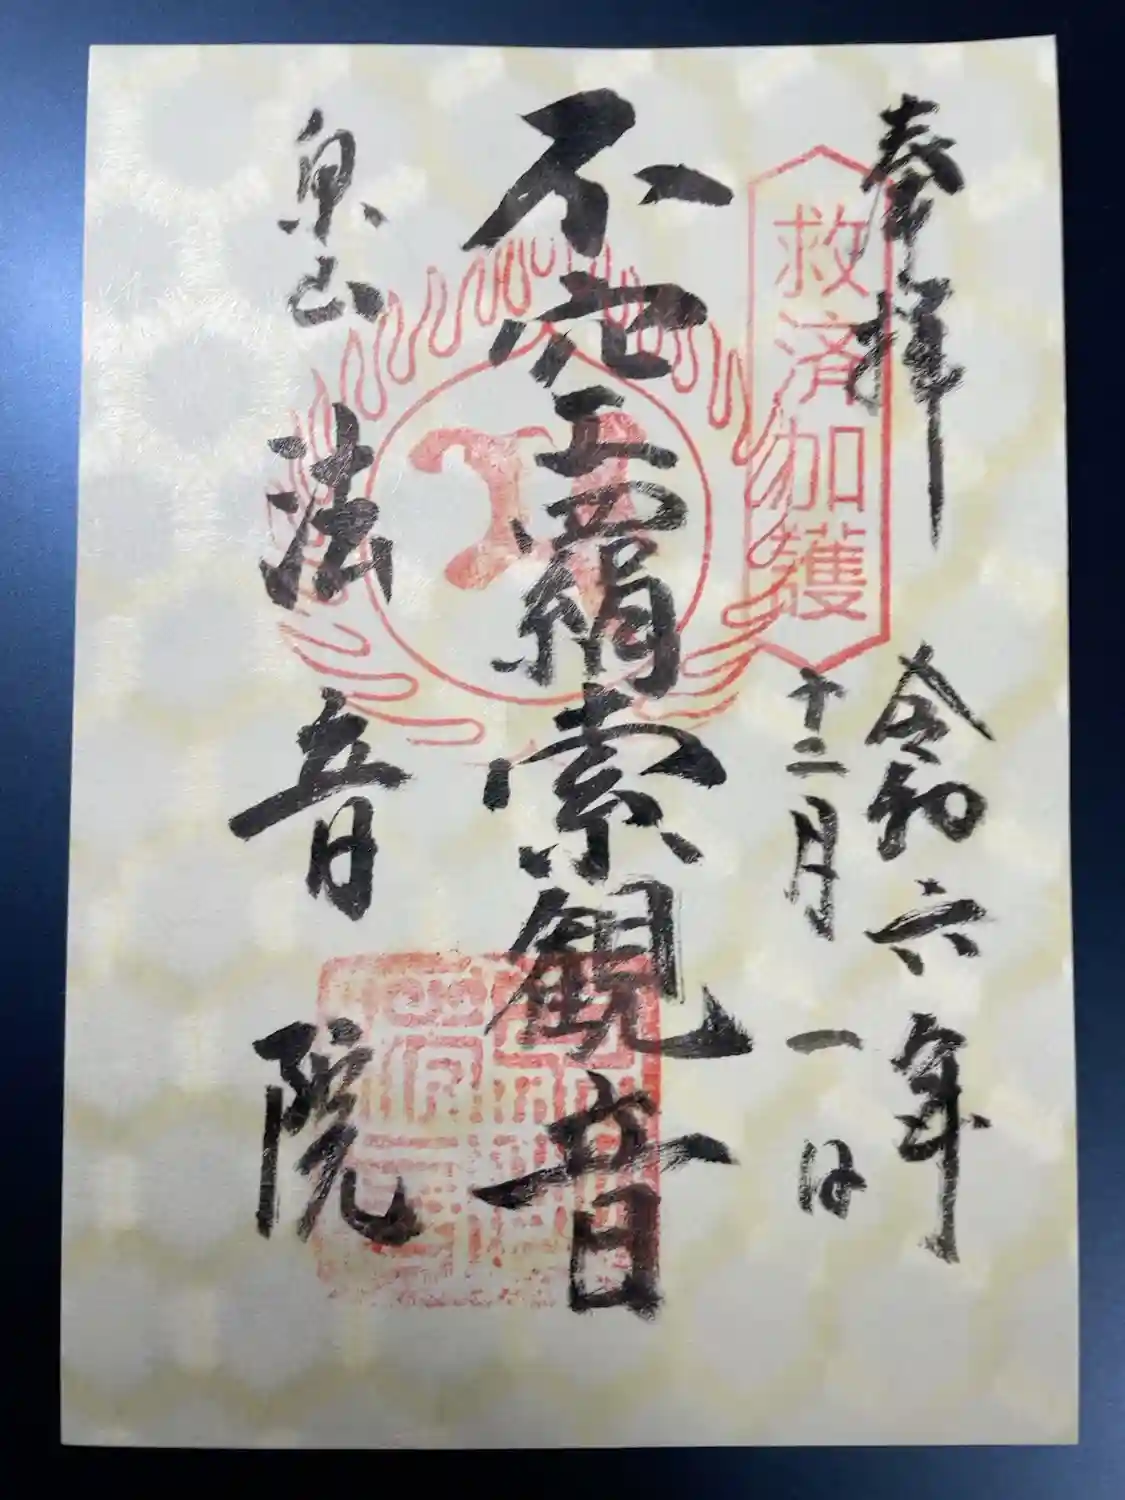 奉拝
令和六年
救済加護
十二月一日
不空羂索観音
泉山
法音院